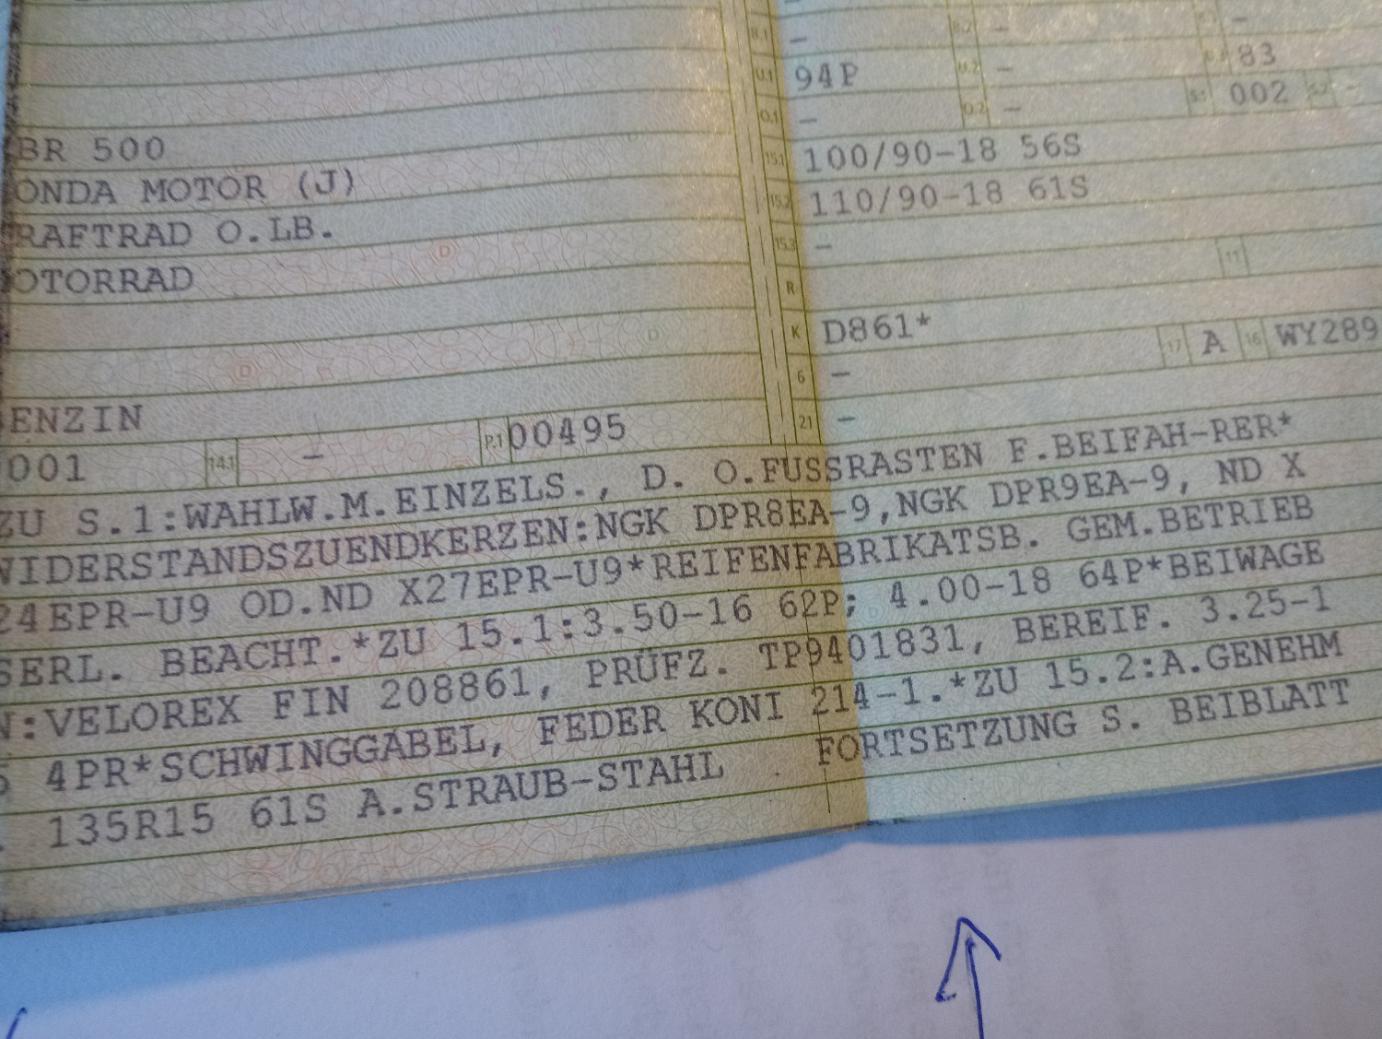 8.1 - -
U.1 94P U.2 - 83
O.1 - O.2 - S.1 002 S.2 -
BR 500 15.1 100/90-18 56S
ONDA MOTOR (J) 15.2 110/90-18 61S
RAFTRAD O.LB. 15.3 -
OTORRAD R 11
K D861* 17 A 16 WY289
6 -
ENZIN 21 -
001 14.1 - P.1 00495
ZU S.1:WAHLW.M.EINZELS., D. O.FUSSRASTEN F.BEIFAH-RER*
WIDERSTANDSZUENDKERZEN:NGK DPR8EA-9,NGK DPR9EA-9, ND X
24EPR-U9 OD.ND X27EPR-U9*REIFENFABRIKATSB. GEM.BETRIEB
SERL. BEACHT.*ZU 15.1:3.50-16 62P; 4.00-18 64P*BEIWAGE
N:VELOREX FIN 208861, PRÜFZ. TP9401831, BEREIF. 3.25-1
6 4PR*SCHWINGGABEL, FEDER KONI 214-1.*ZU 15.2:A.GENEHM
. 135R15 61S A.STRAUB-STAHL FORTSETZUNG S. BEIBLATT